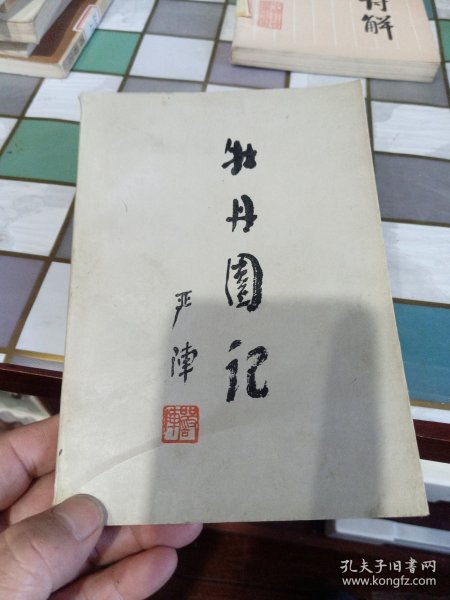 牡丹園记
严陣
诗解
孔夫子旧书网
www.kongfz.com